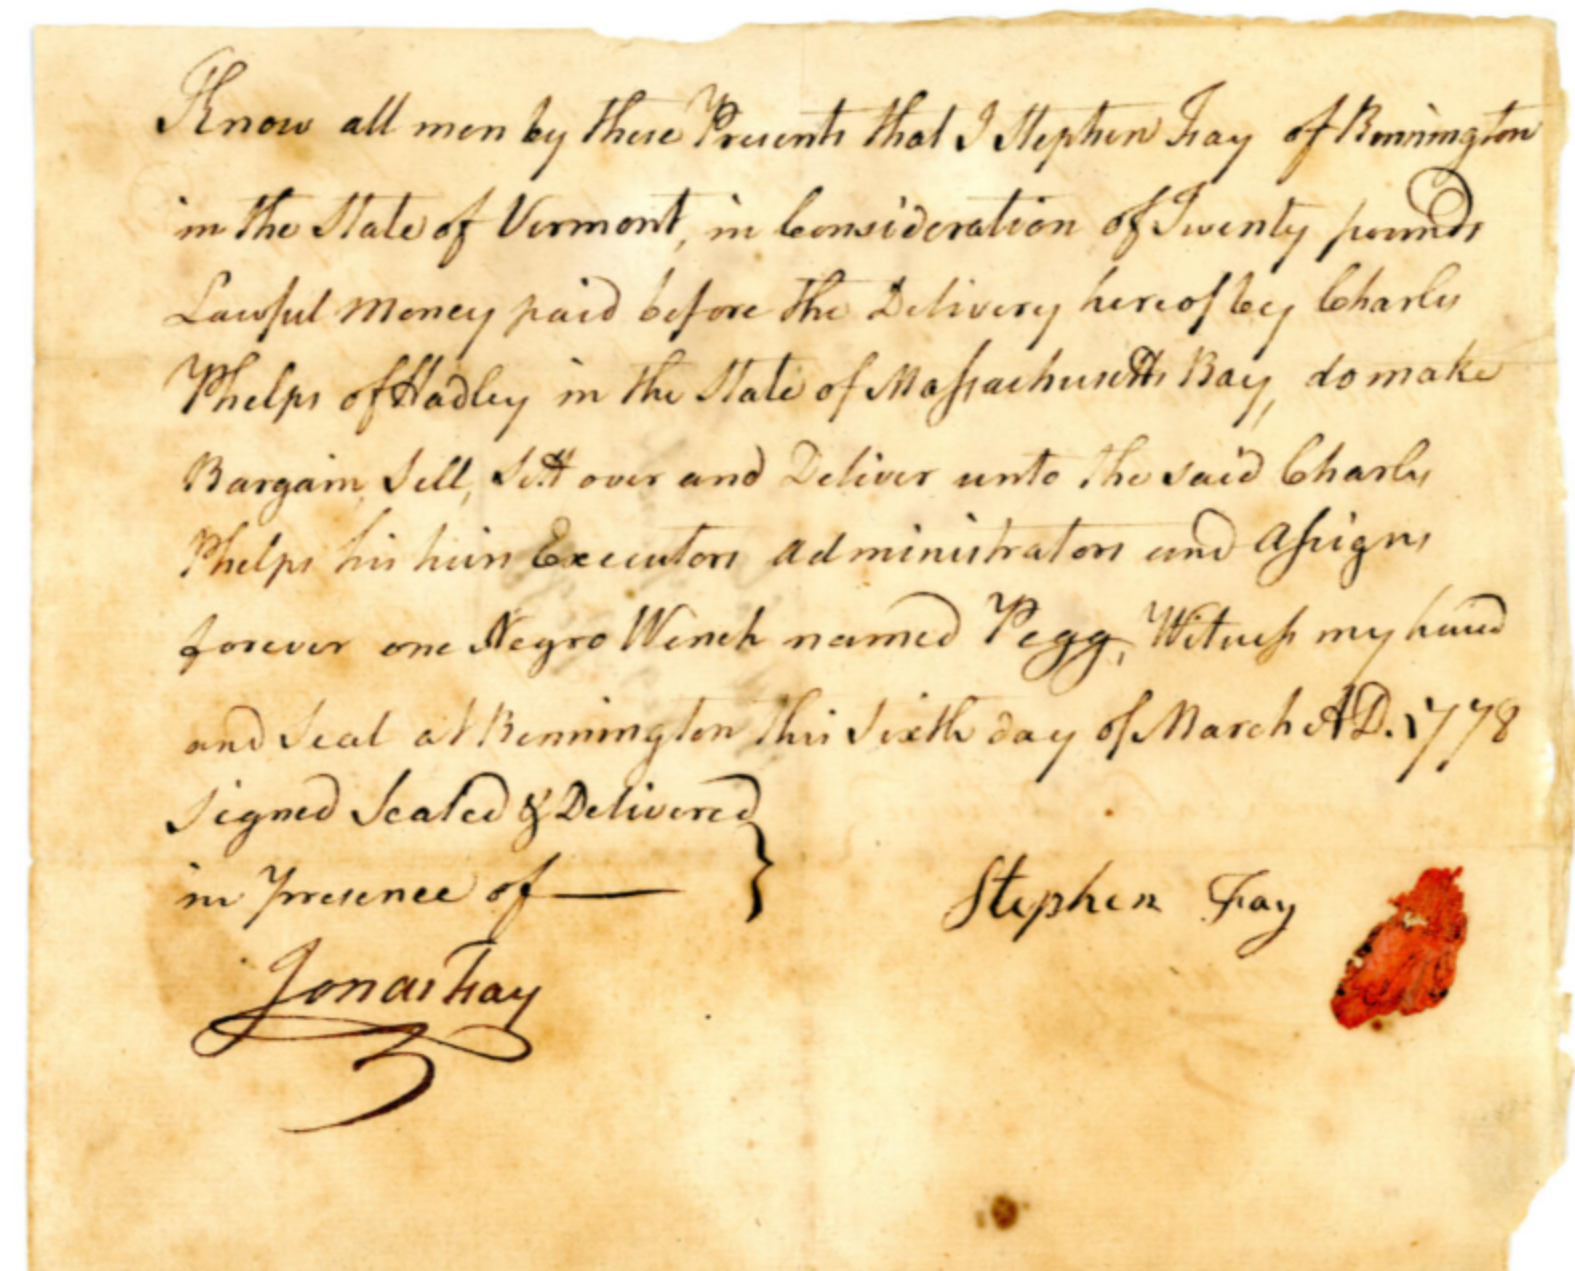 Know all men by these Presents that I Stephen Fay of Bennington
in the State of Vermont, in Consideration of Twenty pounds
Lawful Money paid before the Delivery hereof by Charles
Phelps of Hadley in the State of Massachusetts Bay, do make
Bargain, Sell, Sett over and Deliver unto the said Charles
Phelps his heirs Executors Administrators and Assigns
forever one Negro Wench named Pegg, Witness my hand
and Seal at Bennington this Sixth day of March AD. 1778
Signed Sealed & Delivered
in presence of —
Stephen Fay
Jonas Fay